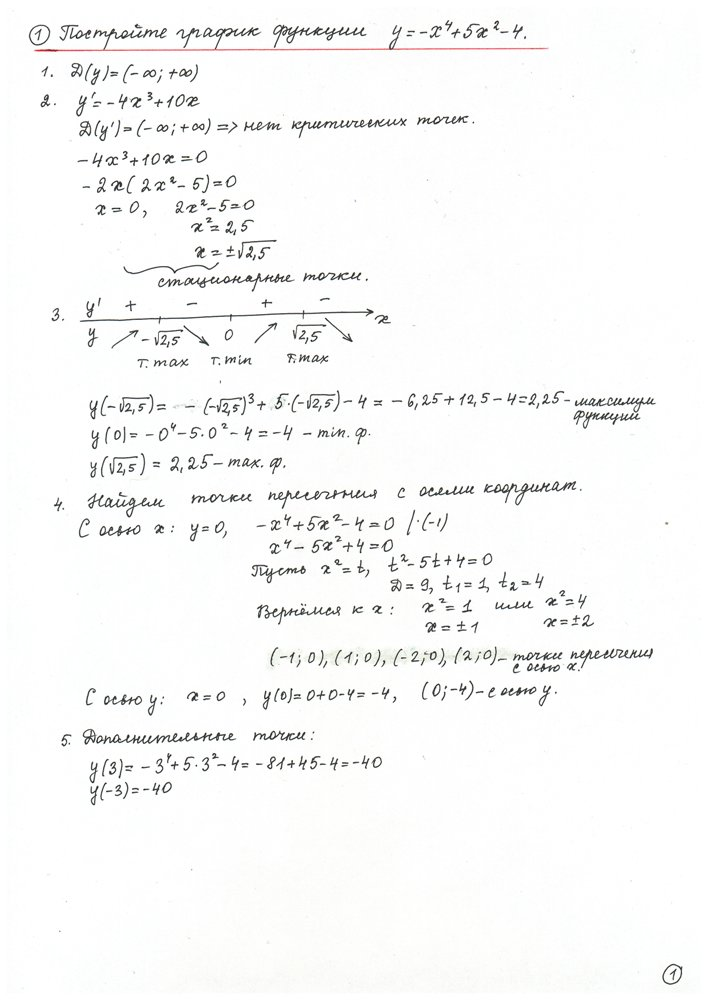 ① Постройте график функции y=-x⁴+5x²-4.
1. D(y)=(-∞; +∞)
2. y'=-4x³+10x
D(y')=(-∞; +∞) => нет критических точек.
-4x³+10x=0
-2x(2x²-5)=0
x=0, 2x²-5=0
x²=2,5
x=±√2,5
стационарные точки.
3. y' + - + -
y -√2,5 0 √2,5 x
т.max т.min т.max
y(-√2,5)= -(-√2,5)³+5·(-√2,5)-4=-6,25+12,5-4=2,25-максимум
функции
y(0)=-0⁴-5·0²-4=-4 - min.ф.
y(√2,5)=2,25-max.ф.
4. Найдем точки пересечения с осями координат.
С осью x: y=0, -x⁴+5x²-4=0 /·(-1)
x⁴-5x²+4=0
Пусть x²=t, t²-5t+4=0
D=9, t₁=1, t₂=4
Вернёмся к x: x²=1 или x²=4
x=±1 x=±2
(-1;0), (1;0), (-2;0), (2;0)-точки пересечения
с осью x.
С осью y: x=0, y(0)=0+0-4=-4, (0;-4)-с осью y.
5. Дополнительные точки:
y(3)=-3⁴+5·3²-4=-81+45-4=-40
y(-3)=-40
①